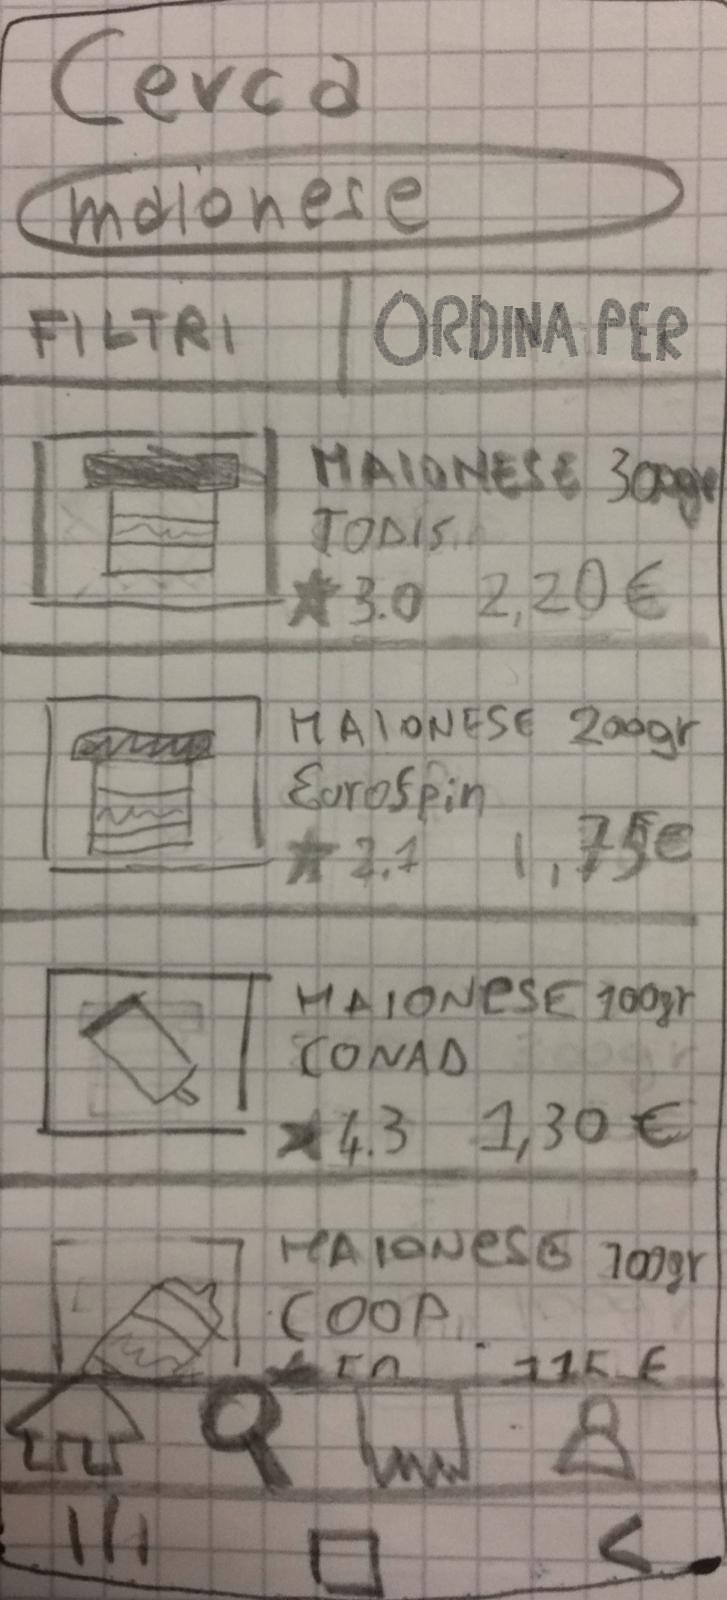 Cerca
maionese
FILTRI ORDINA PER
MAIONESE 300gr
TODIS
★3.0 2,20€
MAIONESE 200gr
Eurospin
★2.1 1,75€
MAIONESE 100gr
CONAD
★4.3 1,30€
MAIONESE 100gr
COOP